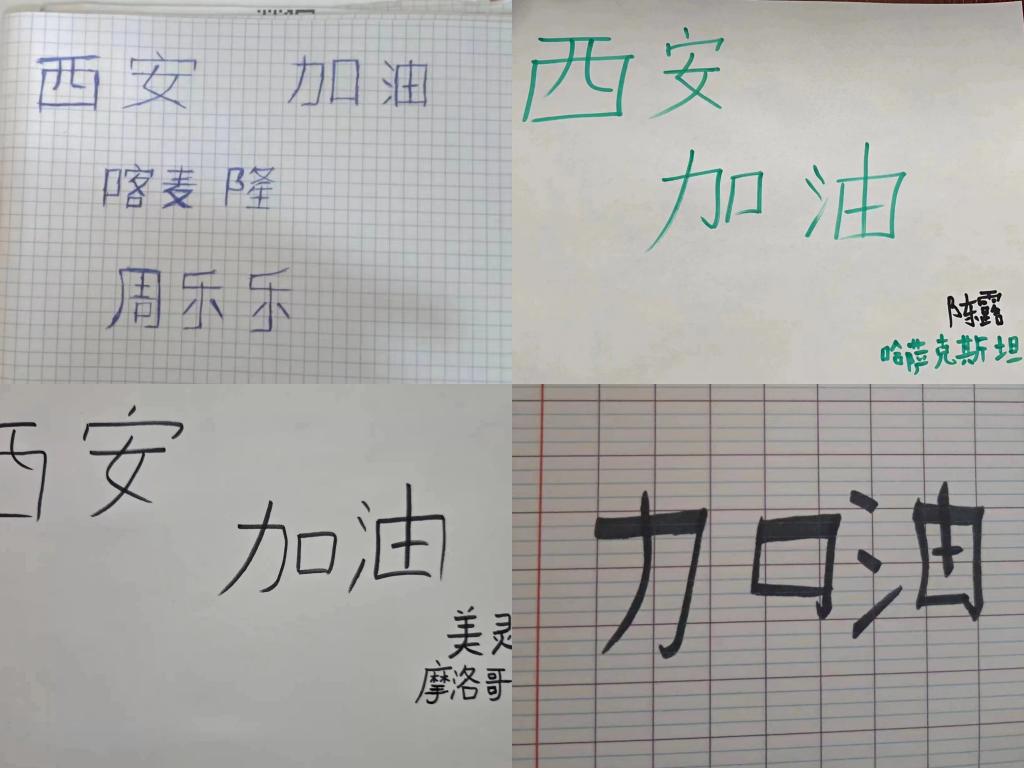 西安 加油
喀麦隆
周乐乐
西安
加油
陈露
哈萨克斯坦
西安
加油
美灵
摩洛哥
加油